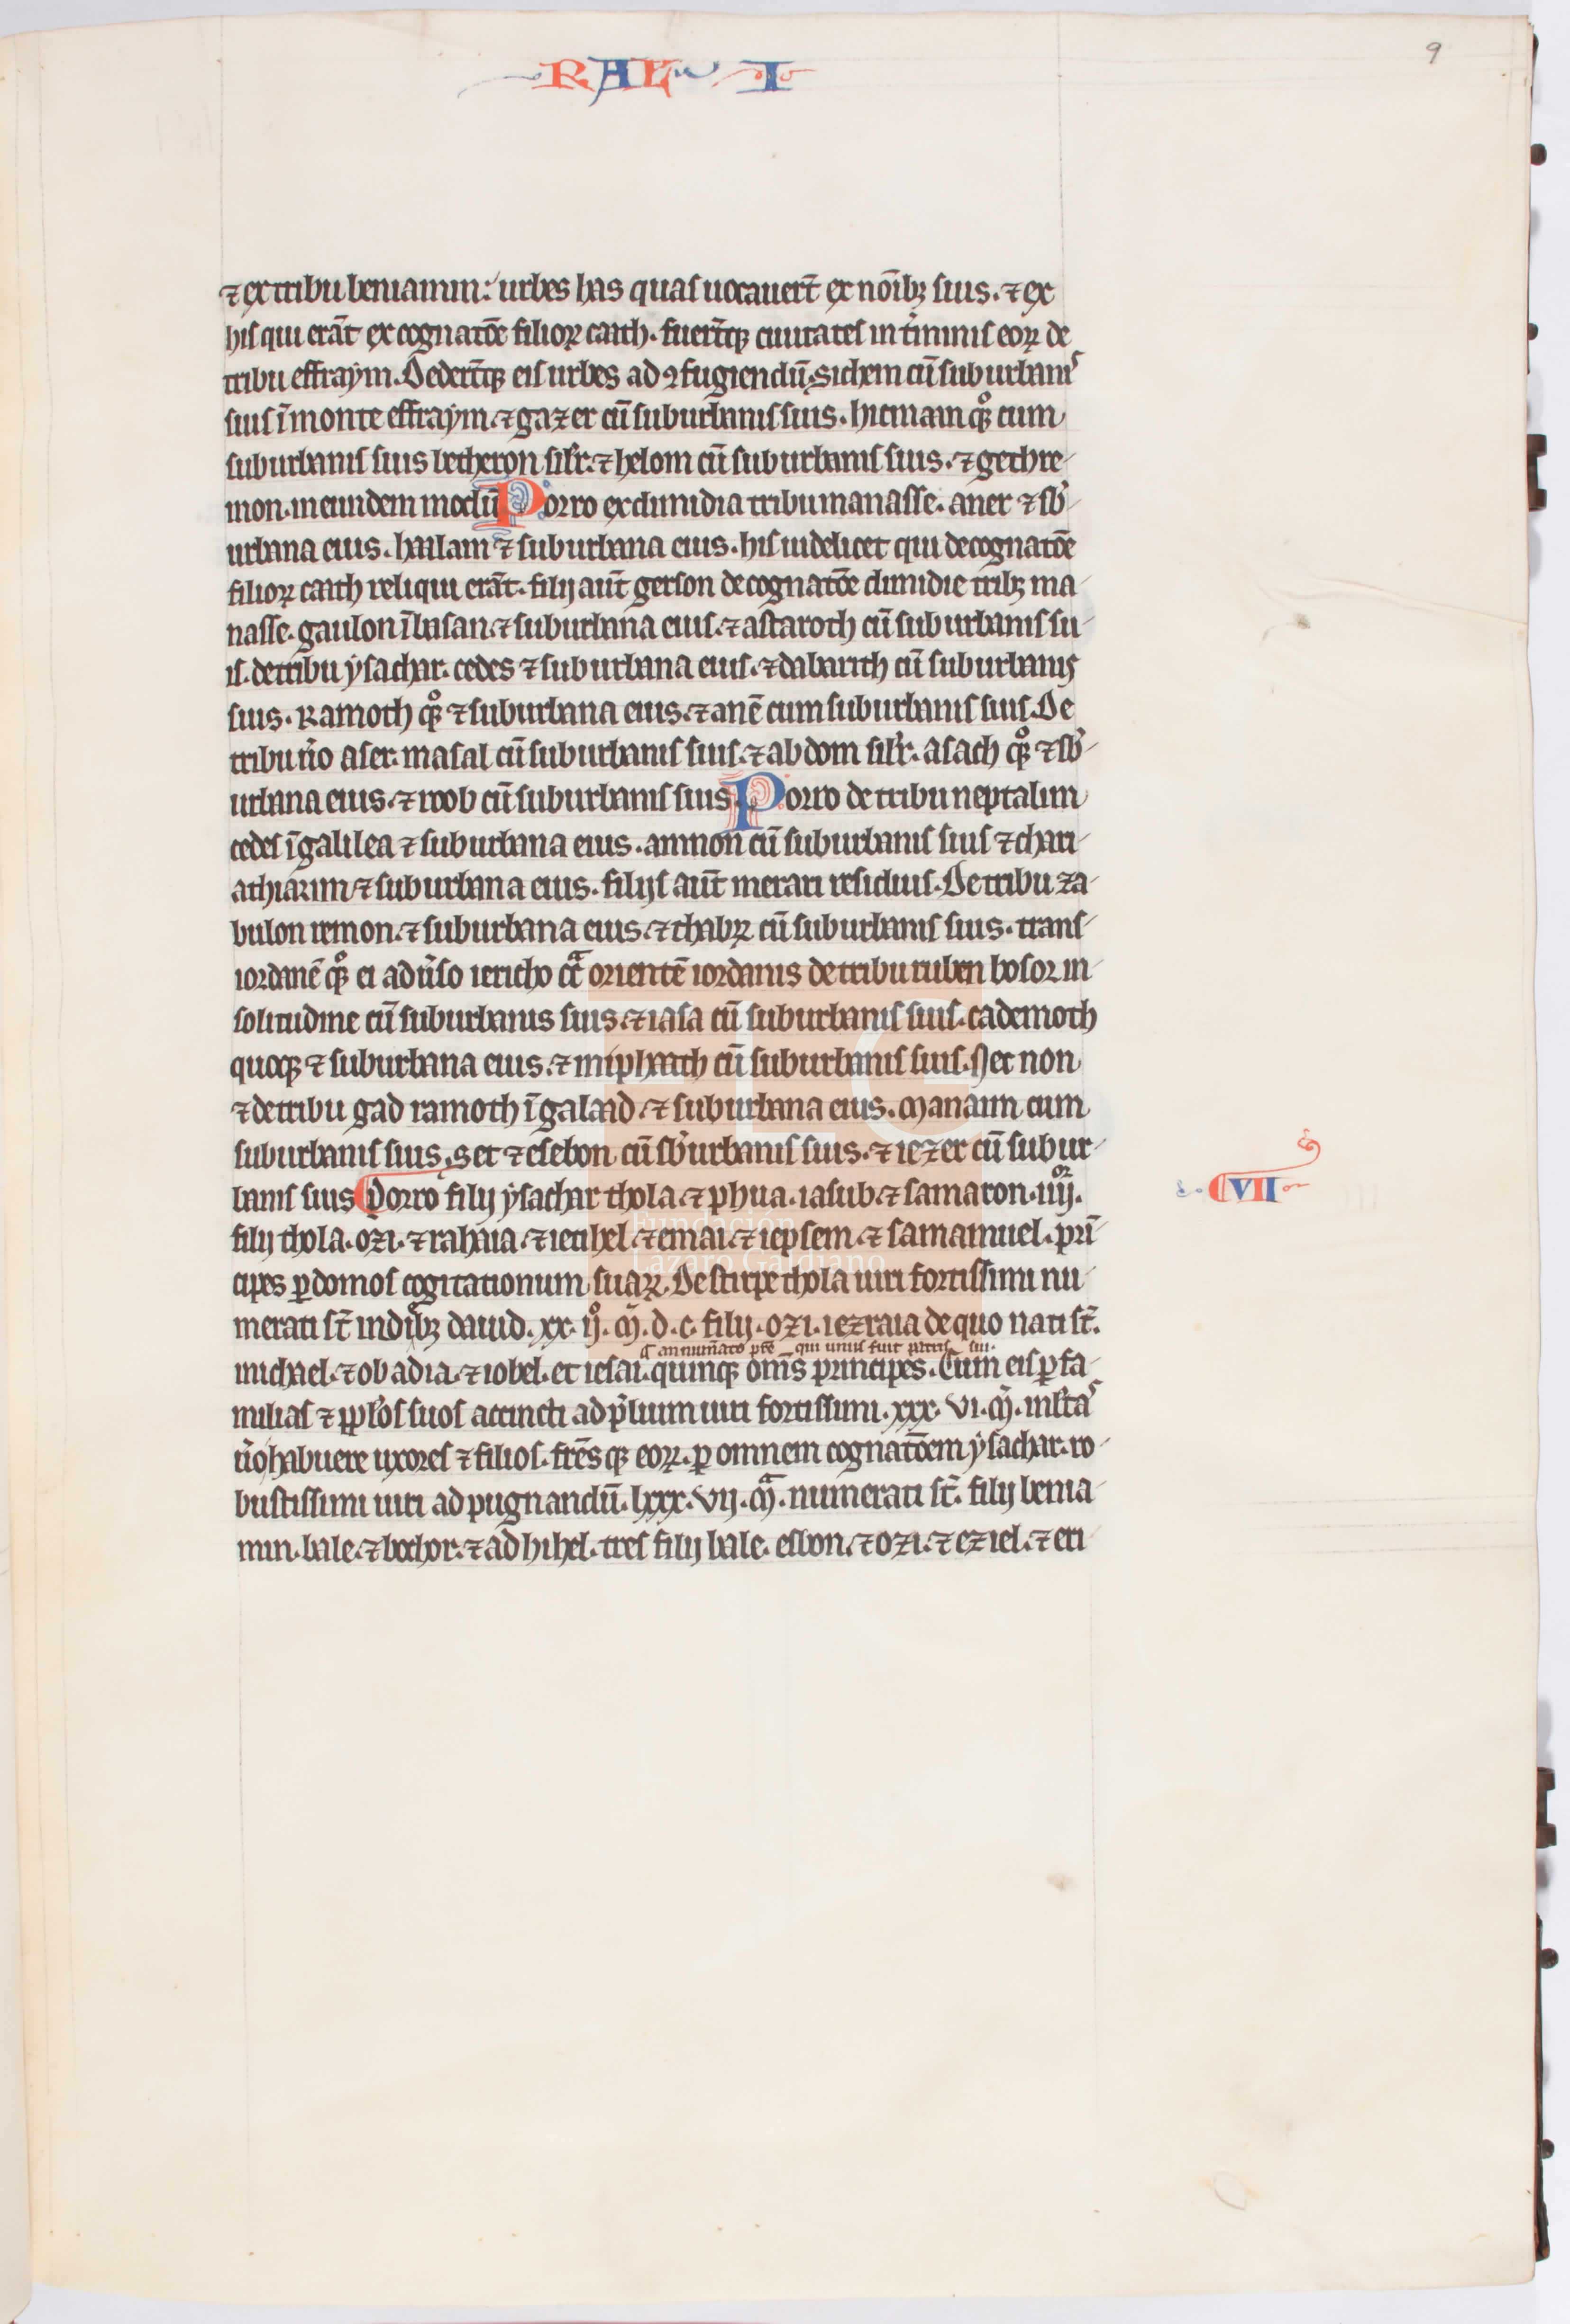 RAL I
9
⁊ ex tribu beniamin: urbes has quas uocauert̄ ex noībꝫ suis. ⁊ ex
his qui erāt ex cognatōe filioꝝ caath. fuert̄qꝫ ciuitates in t̉minis eoꝝ de
tribu effraym. Dedert̄qꝫ eis urbes ad ꝯfugiendū. sichem cū suburbanis
suis ī monte effraym. ⁊ gazer cū suburbanis suis. hicmaam qꝫ̊ cum
suburbanis suis betheron silr̄. ⁊ helom cū suburbanis suis. ⁊ gethre-
mon. in eundem modū Porro ex dimidia tribu manasse. aner ⁊ sb̄-
urbana eius. baalam ⁊ suburbana eius. his uidelicet qui de cognatōe
filioꝝ caath reliqui erāt. filij aut̄ gerson de cognatōe dimidie tribꝫ ma-
nasse. gaulon ī basan. ⁊ suburbana eius. ⁊ astaroth cū suburbanis su-
is. de tribu ysachar. cedes ⁊ suburbana eius. ⁊ dabarith cū suburbanis
suis. Ramoth qꝫ̊ ⁊ suburbana eius. ⁊ anē cum suburbanis suis. De
tribu ůo aser. masal cū suburbanis suis. ⁊ abdom silr̄. asach qꝫ̊ ⁊ sb̄-
urbana eius. ⁊ roob cū suburbanis suis Porro de tribu neptalim
cedes ī galilea ⁊ suburbana eius. ammon cū suburbanis suis ⁊ chari-
athiarim ⁊ suburbana eius. filijs aut̄ merari residuis. De tribu za-
bulon remon. ⁊ suburbana eius. ⁊ thabꝝ cū suburbanis suis. trans-
iordanē qꝫ̊ ei adu̓so iericho cͣt̄ orientē iordanis de tribu ruben bosor in
solitudine cū suburbanis suis. ⁊ iasa cū suburbanis suis. cademoth
quoqꝫ ⁊ suburbana eius. ⁊ miphaath cū suburbanis suis. Nec non
⁊ de tribu gad ramoth ī galaad. ⁊ suburbana eius. Manaim cum
suburbanis suis. set ⁊ esebon cū sb̄urbanis suis. ⁊ iezer cū subur-
banis suis Porro filij ysachar thola. ⁊ phua. iasub. ⁊ samaron. iiijᵒʳ.
CVII
filij thola. ozi. ⁊ raphaia. ⁊ ierihel. ⁊ emai. ⁊ iepsem. ⁊ samamuel. prī-
cipes ꝑ domos cogitationum suaꝝ. De stirpe thola uiri fortissimi nu-
merati st̄ in dieb̅ꝫ dauid. xx. ij̊. M̄. d. c. filij. ozi. iezraia de quo nati st̄.
¶ annumato pr̄e qui unus fuit patris sui.
michael. ⁊ obadia. ⁊ iohel. et iesai. quinqꝫ om̄s principes. Cum eis ꝑ fa-
milias ⁊ ppl̄os suos accincti ad p̄lium uiri fortissimi. xxx. vi. M̄. mltas
u̓o habuere uxores ⁊ filios. frēsqꝫ eoꝝ. ꝑ omnem cognatōem ysachar. ro-
bustissimi uiri ad pugnandū. lxxx. vij. Mͣ. numerati st̄. filij benia-
min. bale. ⁊ bochor. ⁊ adhihel. tres filij bale. esbon. ⁊ ozi. ⁊ eziel. ⁊ eri-
Fundación
Lázaro Galdiano